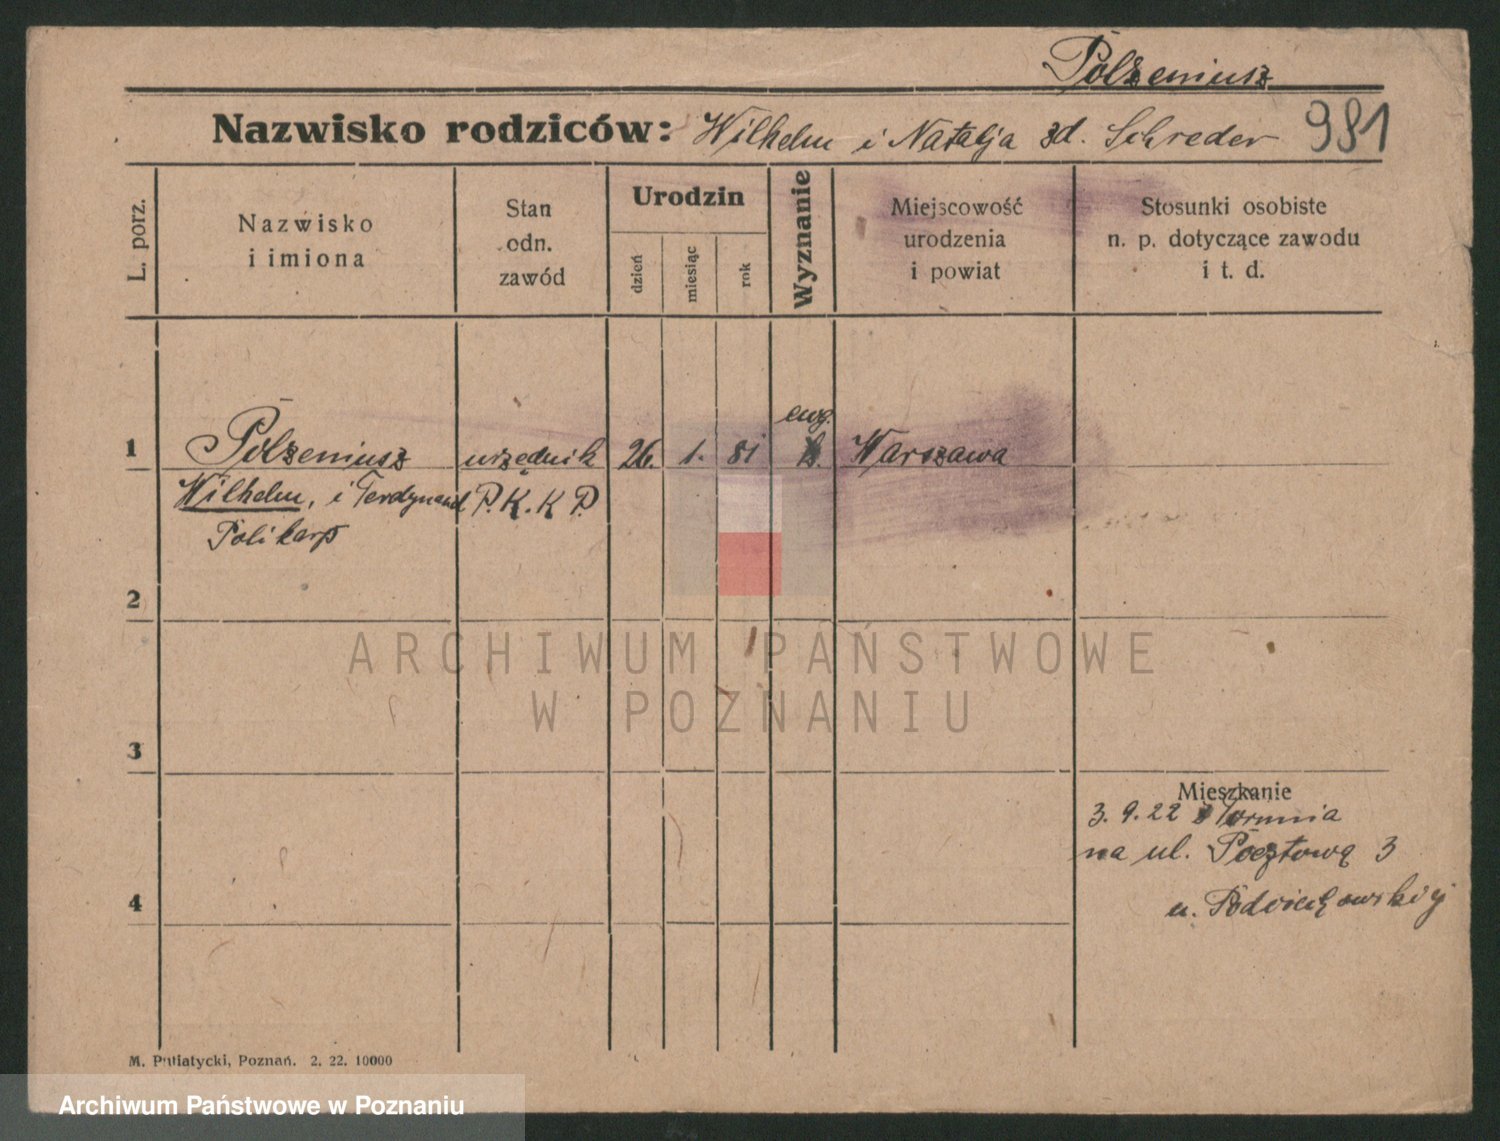 Polzeniusz
Nazwisko rodziców: Wilhelm i Natalja zd. Schreder 981
L. porz.
Nazwisko
i imiona
Stan
odn.
zawód
Urodzin
dzień
miesiąc
rok
Wyznanie
Miejscowość
urodzenia
i powiat
Stosunki osobiste
n. p. dotyczące zawodu
i t. d.
ewg.
1 Polzeniusz urzędnik 26. 1. 81 Warszawa
Wilhelm, i Ferdynand P.K.K.P.
Polikarp
2
ARCHIWUM PAŃSTWOWE
W POZNANIU
3
Mieszkanie
3. 9. 22 z Torunia
na ul. Pocztową 3
4
u.
M. Putiatycki, Poznań. 2. 22. 10000
Archiwum Państwowe w Poznaniu